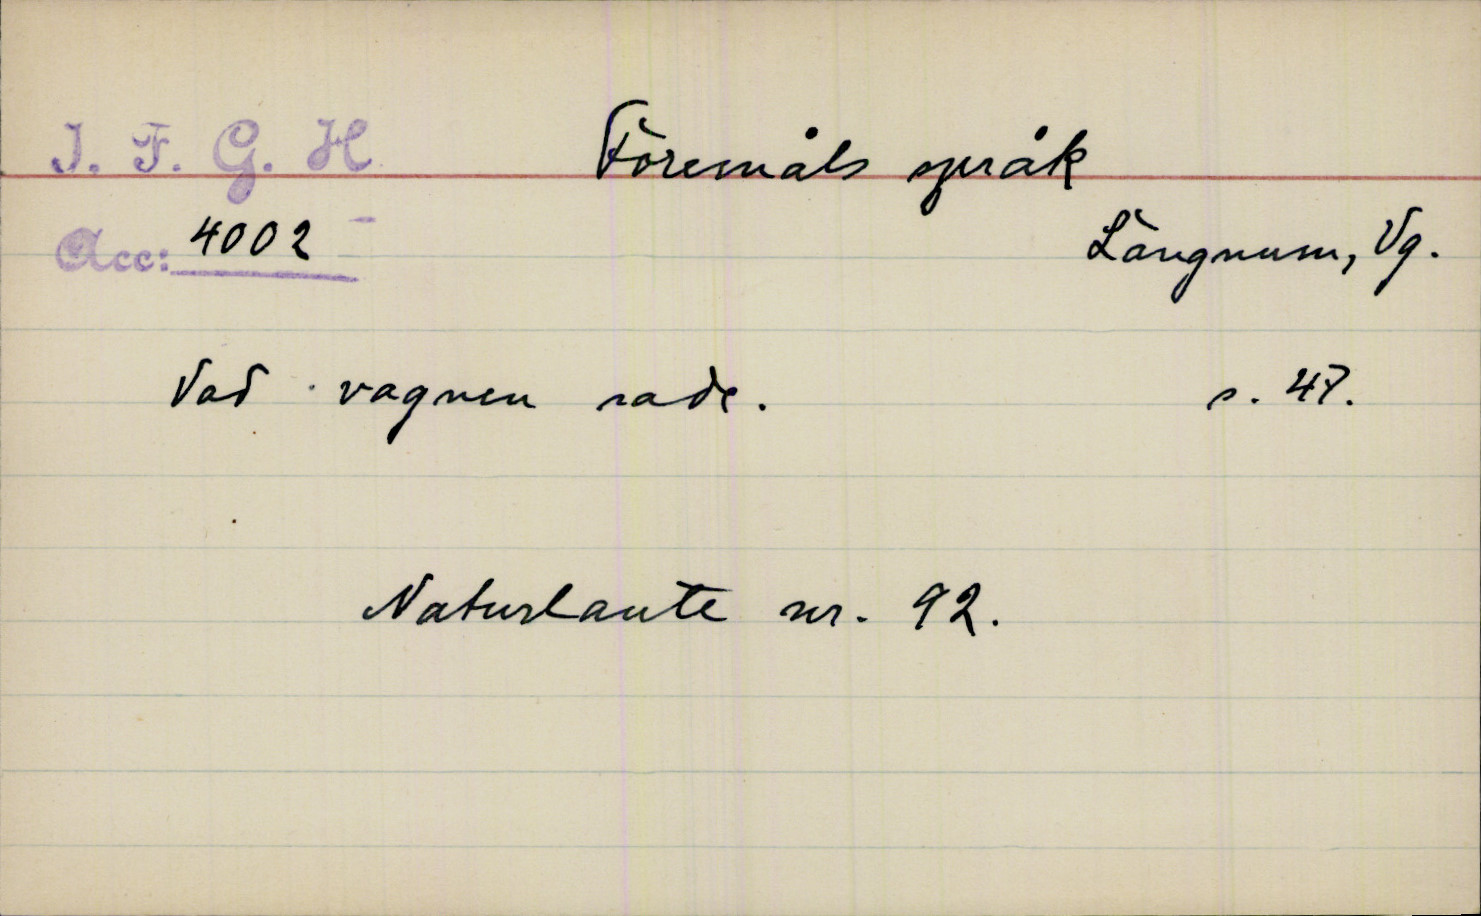 I. F. G. H.
Föremåls språk
Acc: 4002
Långnum, Vg.
Vad vagnen sade.
s. 47.
Naturlaute nr. 92.